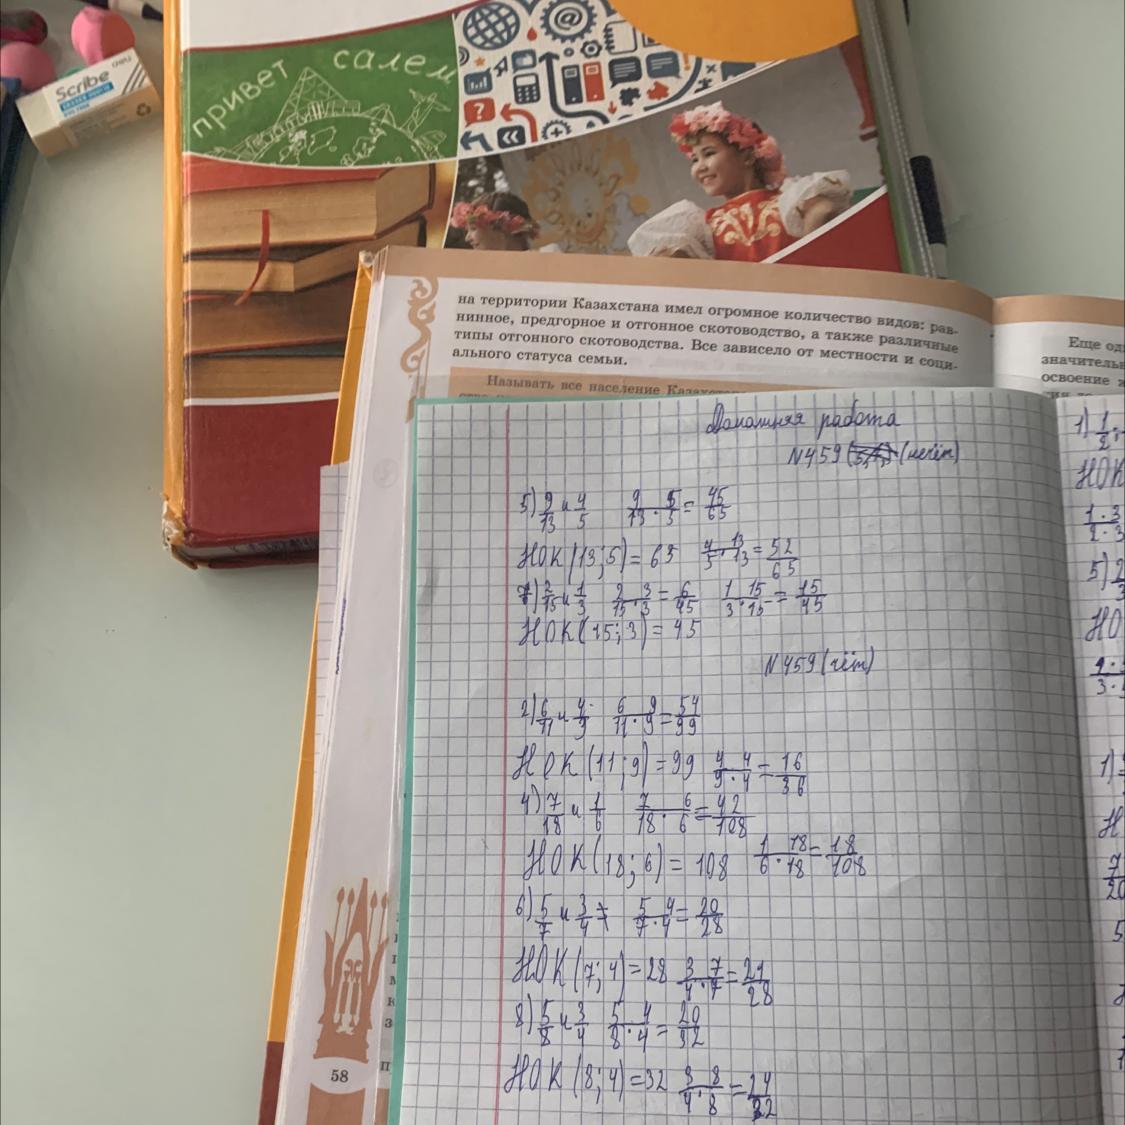 Scribe
привет салем
на территории Казахстана имел огромное количество видов: рав-
нинное, предгорное и отгонное скотоводство, а также различные
типы отгонного скотоводства. Все зависело от местности и соци-
ального статуса семьи.
Называть все население
Еще
значитель
освоение
Домашняя работа
N459 (нечёт)
5) 9/13 и 4/5 9/13 · 5/5 = 45/65
НОК (13; 5) = 65 4/5 · 13/13 = 52/65
7) 2/15 и 1/3 2/15 · 3/3 = 6/45 1/3 · 15/15 = 15/45
НОК (15; 3) = 45
N459 (чёт)
2) 6/11 и 4/9 6/11 · 9/9 = 54/99
НОК (11; 9) = 99 4/9 · 4/4 = 16/36
4) 7/18 и 1/6 7/18 · 6/6 = 42/108
НОК (18; 6) = 108 1/6 · 18/18 = 18/108
6) 5/7 и 3/4 5/7 · 4/4 = 20/28
НОК (7; 4) = 28 3/4 · 7/7 = 21/28
8) 5/8 и 3/4 5/8 · 4/4 = 20/32
НОК (8; 4) = 32 3/4 · 8/8 = 24/32
58